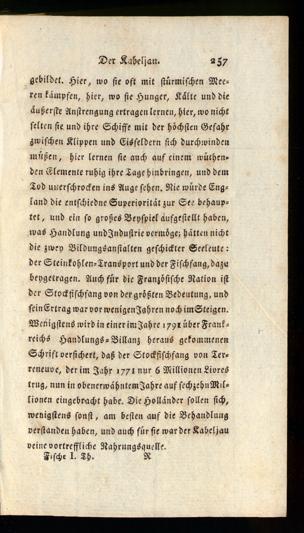 Der Kabeljau. 257
gebildet. Hier, wo sie oft mit stürmischen Mee-
ren kämpfen, hier, wo sie Hunger, Kälte und die
äußerste Anstrengung ertragen lernen, hier, wo nicht
selten sie und ihre Schiffe mit der höchsten Gefahr
zwischen Klippen und Eisfeldern sich durchwinden
müßen, hier lernen sie auch auf einem wüthen-
den Elemente ruhig ihre Tage hinbringen, und dem
Tod unerschrocken ins Auge sehen. Nie würde Eng-
land die entschiedne Superiorität zur See behaup-
tet, und ein so großes Beyspiel aufgestellt haben,
was Handlung und Industrie vermöge; hätten nicht
die zwey Bildungsanstalten geschickter Seeleute:
der Steinkohlen-Transport und der Fischfang, dazu
beygetragen. Auch für die Französische Nation ist
der Stockfischfang von der größten Bedeutung, und
sein Ertrag war vor wenigen Jahren noch im Steigen.
Wenigstens wird in einer im Jahre 1791 über Frank-
reichs Handlungs-Billanz heraus gekommenen
Schrift versichert, daß der Stockfischfang von Ter-
reneuve, der im Jahr 1771 nur 6 Millionen Livres
trug, nun in obenerwähntem Jahre auf sechzehn Mil-
lionen eingebracht habe. Die Holländer sollen sich,
wenigstens sonst, am besten auf die Behandlung
verstanden haben, und auch für sie war der Kabeljau
eine vortreffliche Nahrungsquelle.
Fische I. Th. R